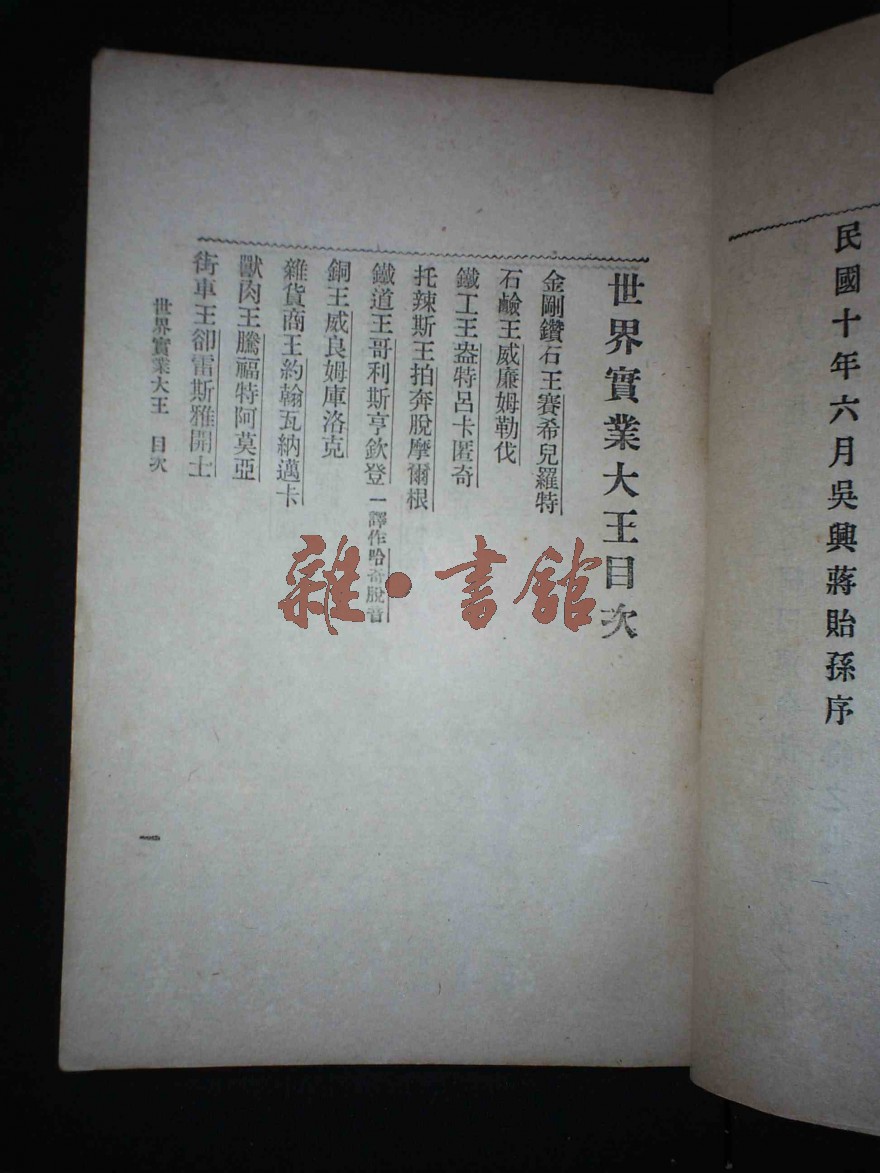 民國十年六月吳興蔣貽孫序
世界實業大王目次
金剛鑽石王賽希兒羅特
石鹼王威廉姆勒伐
鐵工王盎特呂卡匿奇
托辣斯王拍奔脫摩爾根
鐵道王哥利斯亨欽登 一譯作哈奇脫音
銅王威良姆庫洛克
雜貨商王約翰瓦納邁卡
獸肉王騰福特阿莫亞
街車王卻雷斯雅開士
世界實業大王 目次
一
雜·書館